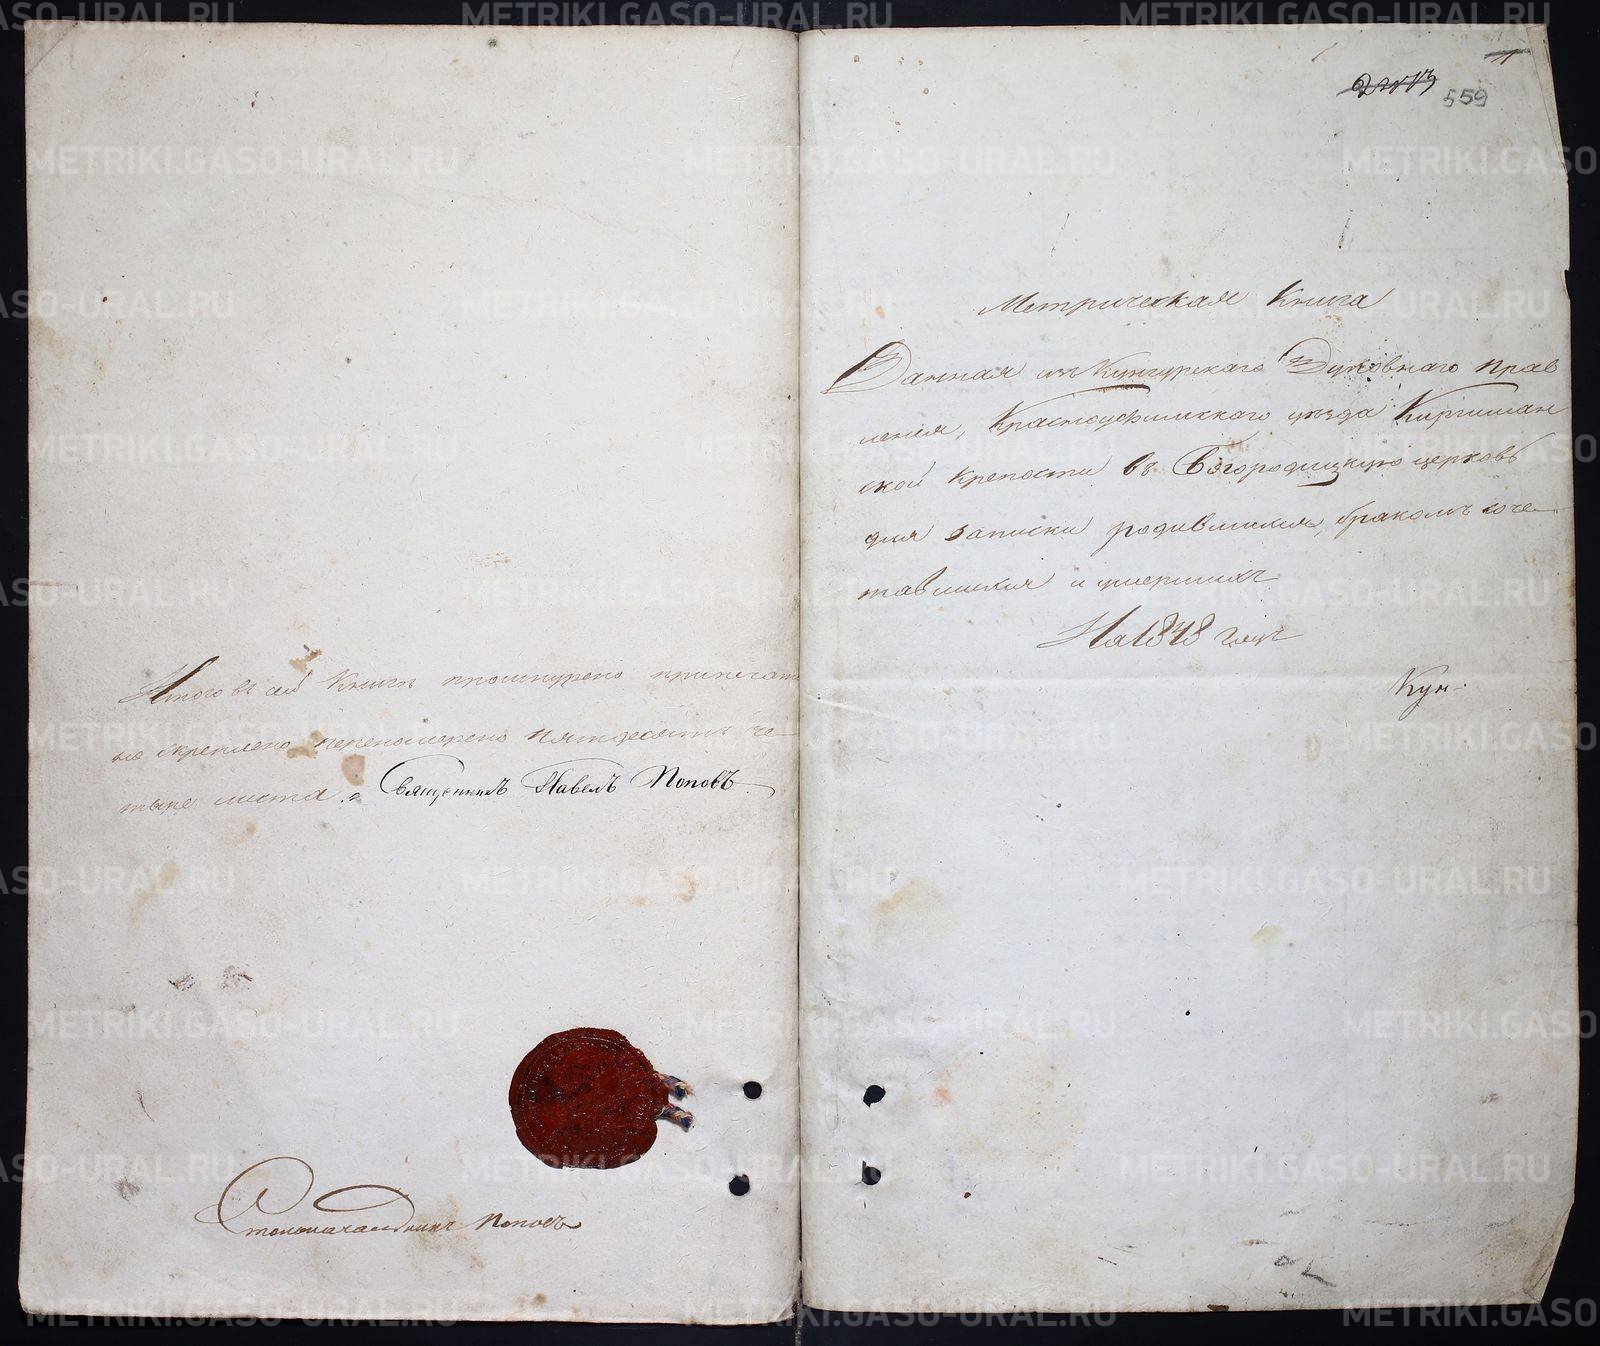 Итого въ сей Книге прошнурено припечата
но скреплено перепомерено пятьдесятъ че-
тыре листа. Священникъ Павелъ Поповъ
Столоначальникъ Поповъ
559
Метрическая Книга
Данная изъ Кунгурскаго Духовнаго Прав
ления, Красноуфимскаго уезда Киргишан
ской крепости въ Богородицкую церковь
для записки родившихся, бракомъ соче-
тавшихся и умершихъ
На 1848 годъ
Кун-
METRIKI.GASO-URAL.RU